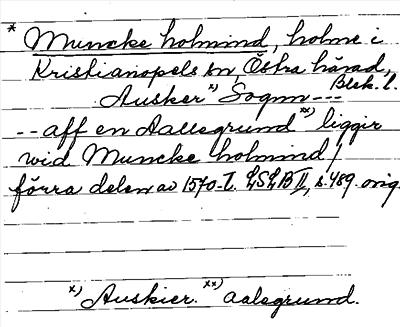 * Muncke holmind, holme i
Kristianopels sn, Östra härad,
Blek. l.
Ausker x) Sognn ---
-- aff en Aallegrund xx) liggir
wid Muncke holmind /
förra delen av 1570-t. LSLB II, s. 489 orig.
x) Auskier. xx) aalegrund.